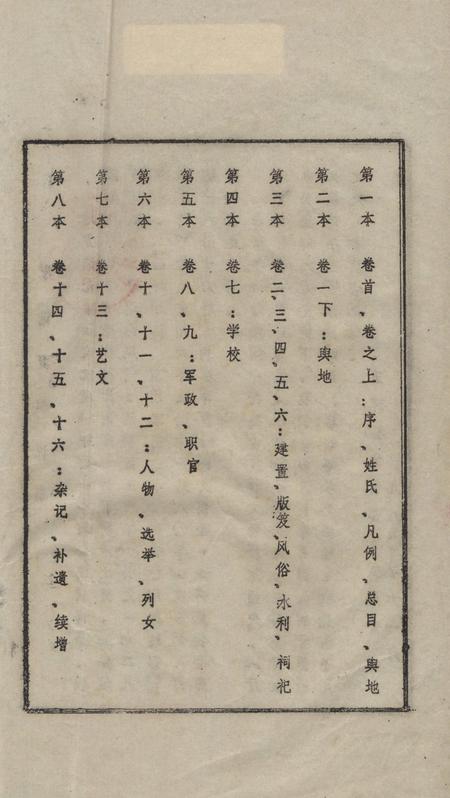 第一本 卷首、卷之上：序、姓氏、凡例、总目、舆地
第二本 卷一下：舆地
第三本 卷二、三、四、五、六：建置、版笈、风俗、水利、祠祀
第四本 卷七：学校
第五本 卷八、九：军政、职官
第六本 卷十、十一、十二：人物、选举、列女
第七本 卷十三：艺文
第八本 卷十四、十五、十六：杂记、补遗、续增